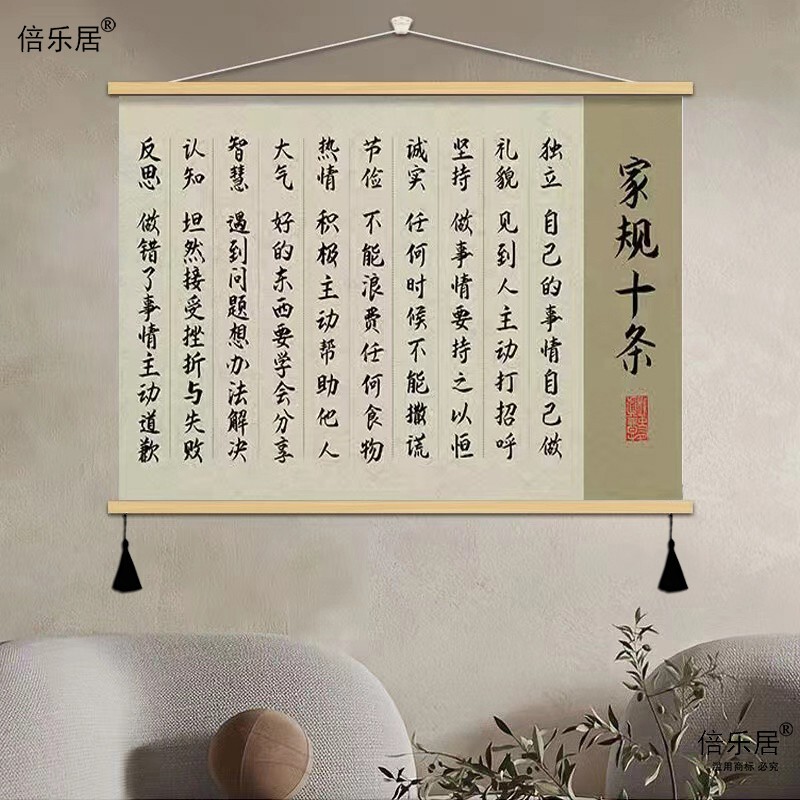 倍乐居®
家规十条
独立 自己的事情自己做
礼貌 见到人主动打招呼
坚持 做事情要持之以恒
诚实 任何时候不能撒谎
节俭 不能浪费任何食物
热情 积极主动帮助他人
大气 好的东西要学会分享
智慧 遇到问题想办法解决
认知 坦然接受挫折与失败
反思 做错了事情主动道歉
倍乐居®
盗用商标 必究